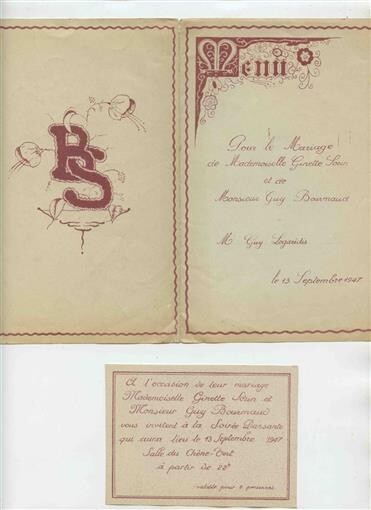 BS
Menu
Pour le Mariage
de Mademoiselle Ginette Soin
et de
Monsieur Guy Bourmaud
M. Guy Logaridis
le 13 Septembre 1947
A l'occasion de leur mariage
Mademoiselle Ginette Soin et
Monsieur Guy Bourmaud
vous invitent à la Soirée Dansante
qui aura lieu le 13 Septembre 1947
Salle du Chêne-Vert
à partir de 22h
valable pour 2 personnes